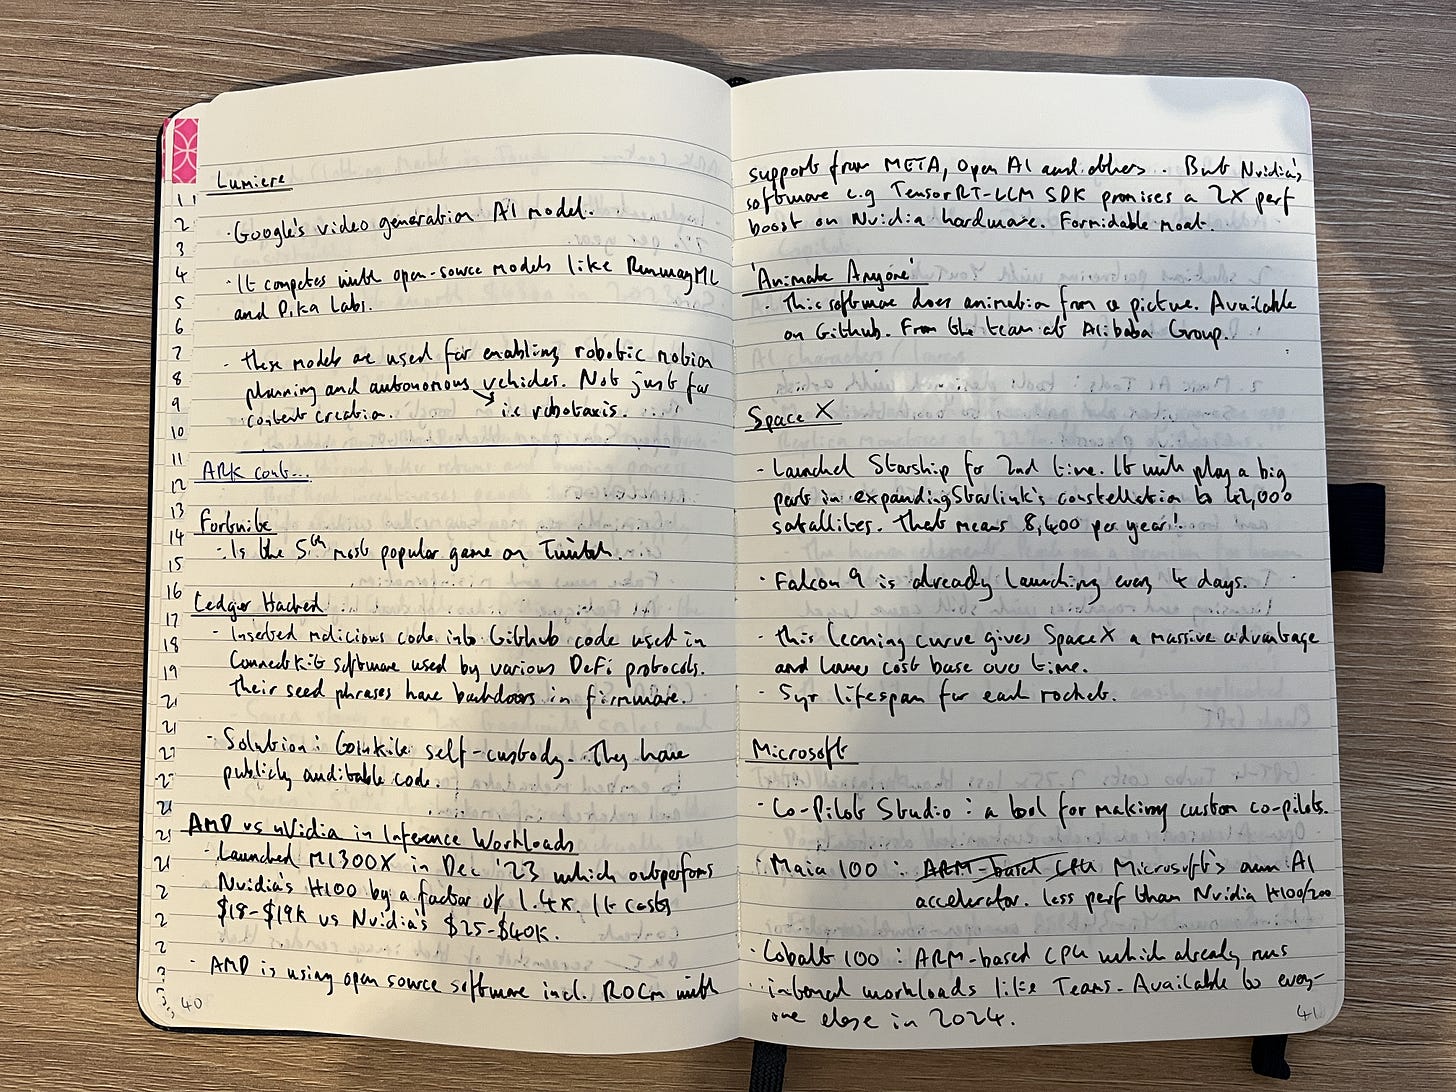 Lumiere
· Google's video generation AI model.
· It competes with open-source models like RunwayML
and Pika Labs.
· These models are used for enabling robotic motion
planning and autonomous vehicles. Not just for
content creation. → i.e robotaxis.
ARK cont...
Fortnite
- Is the 5th most popular game on Twitch.
Ledger Hacked
· Inserted malicious code into Github code used in
ConnectKit software used by various DeFi protocols.
Their seed phrases have backdoors in firmware.
· Solution: Coinkite self-custody. They have
publicly auditable code.
AMD vs nVidia in Inference Workloads
· Launched MI300X in Dec '23 which outperforms
Nvidia's H100 by a factor of 1.4x. It costs
$18-$19K vs Nvidia's $25-$40K.
· AMD is using open source software incl. ROCm with
40
support from META, Open AI and others. But Nvidia's
software e.g TensorRT-LLM SDK promises a 2X perf
boost on Nvidia hardware. Formidable moat.
'Animate Anyone'
· This software does animation from a picture. Available
on Github. From the team at Alibaba Group.
Space X
- Launched Starship for 2nd time. It will play a big
part in expanding Starlink's constellation to 42,000
satallites. That means 8,400 per year!
· Falcon 9 is already launching every 4 days.
· This learning curve gives SpaceX a massive advantage
and lower cost base over time.
- 5yr lifespan for each rocket.
Microsoft
· Co-Pilot Studio : a tool for making custom co-pilots.
· Maia 100 : ARM-based CPU Microsoft's own AI
accelerator. less perf than Nvidia H100/200
· Cobalt 100 : ARM-based CPU which already runs
internal workloads like Teams. Available to every-
one else in 2024.
41